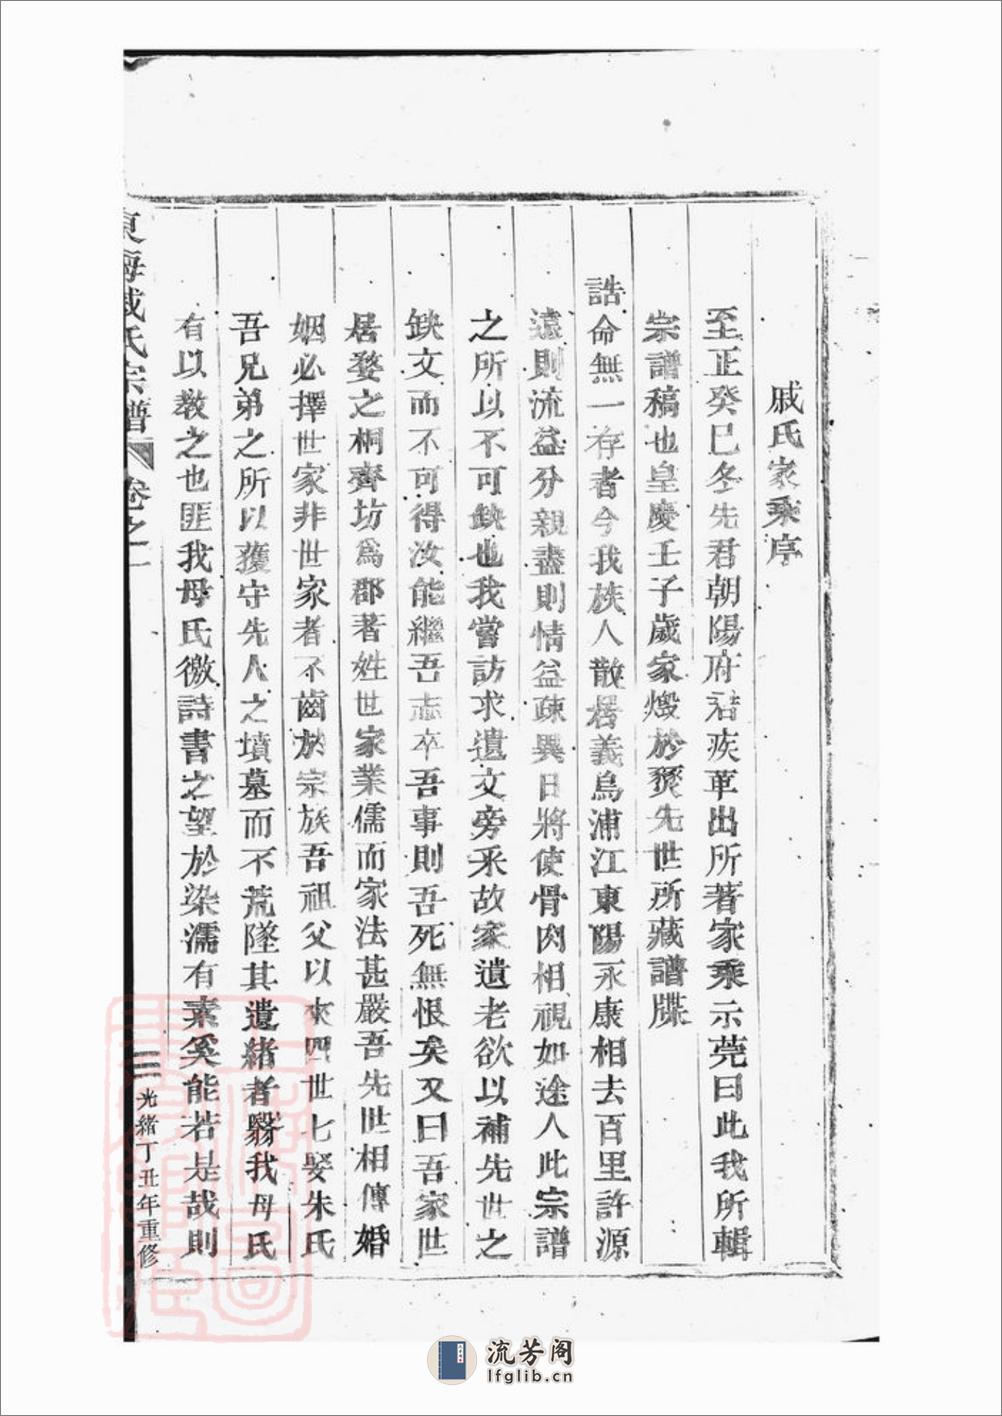 戚氏家乘序
至正癸巳冬先君朝陽府君疾革出所著家乘示莞曰此我所輯
宗譜稿也皇慶壬子歲家燬於爕先世所藏譜牒
誥命無一存者今我族人散居義烏浦江東陽永康相去百里許源
遠則流益分親盡則情益疎異日將使骨肉相視如途人此宗譜
之所以不可缺也我嘗訪求遺文旁采故家遺老欲以補先世之
缺文而不可得汝能繼吾志卒吾事則吾死無恨矣又曰吾家世
居婺之桐齊坊爲郡著姓世家業儒而家法甚嚴吾先世相傳婚
姻必擇世家非世家者不齒於宗族吾祖父以來四世七娶朱氏
吾兄弟之所以獲守先人之墳墓而不荒墜其遺緒者繄我母氏
有以教之也匪我母氏徹詩書之望於染濡有素奚能若是哉則
東海戚氏宗譜 卷之一
三 光緒丁丑年重修
流芳阁
lfglib.cn